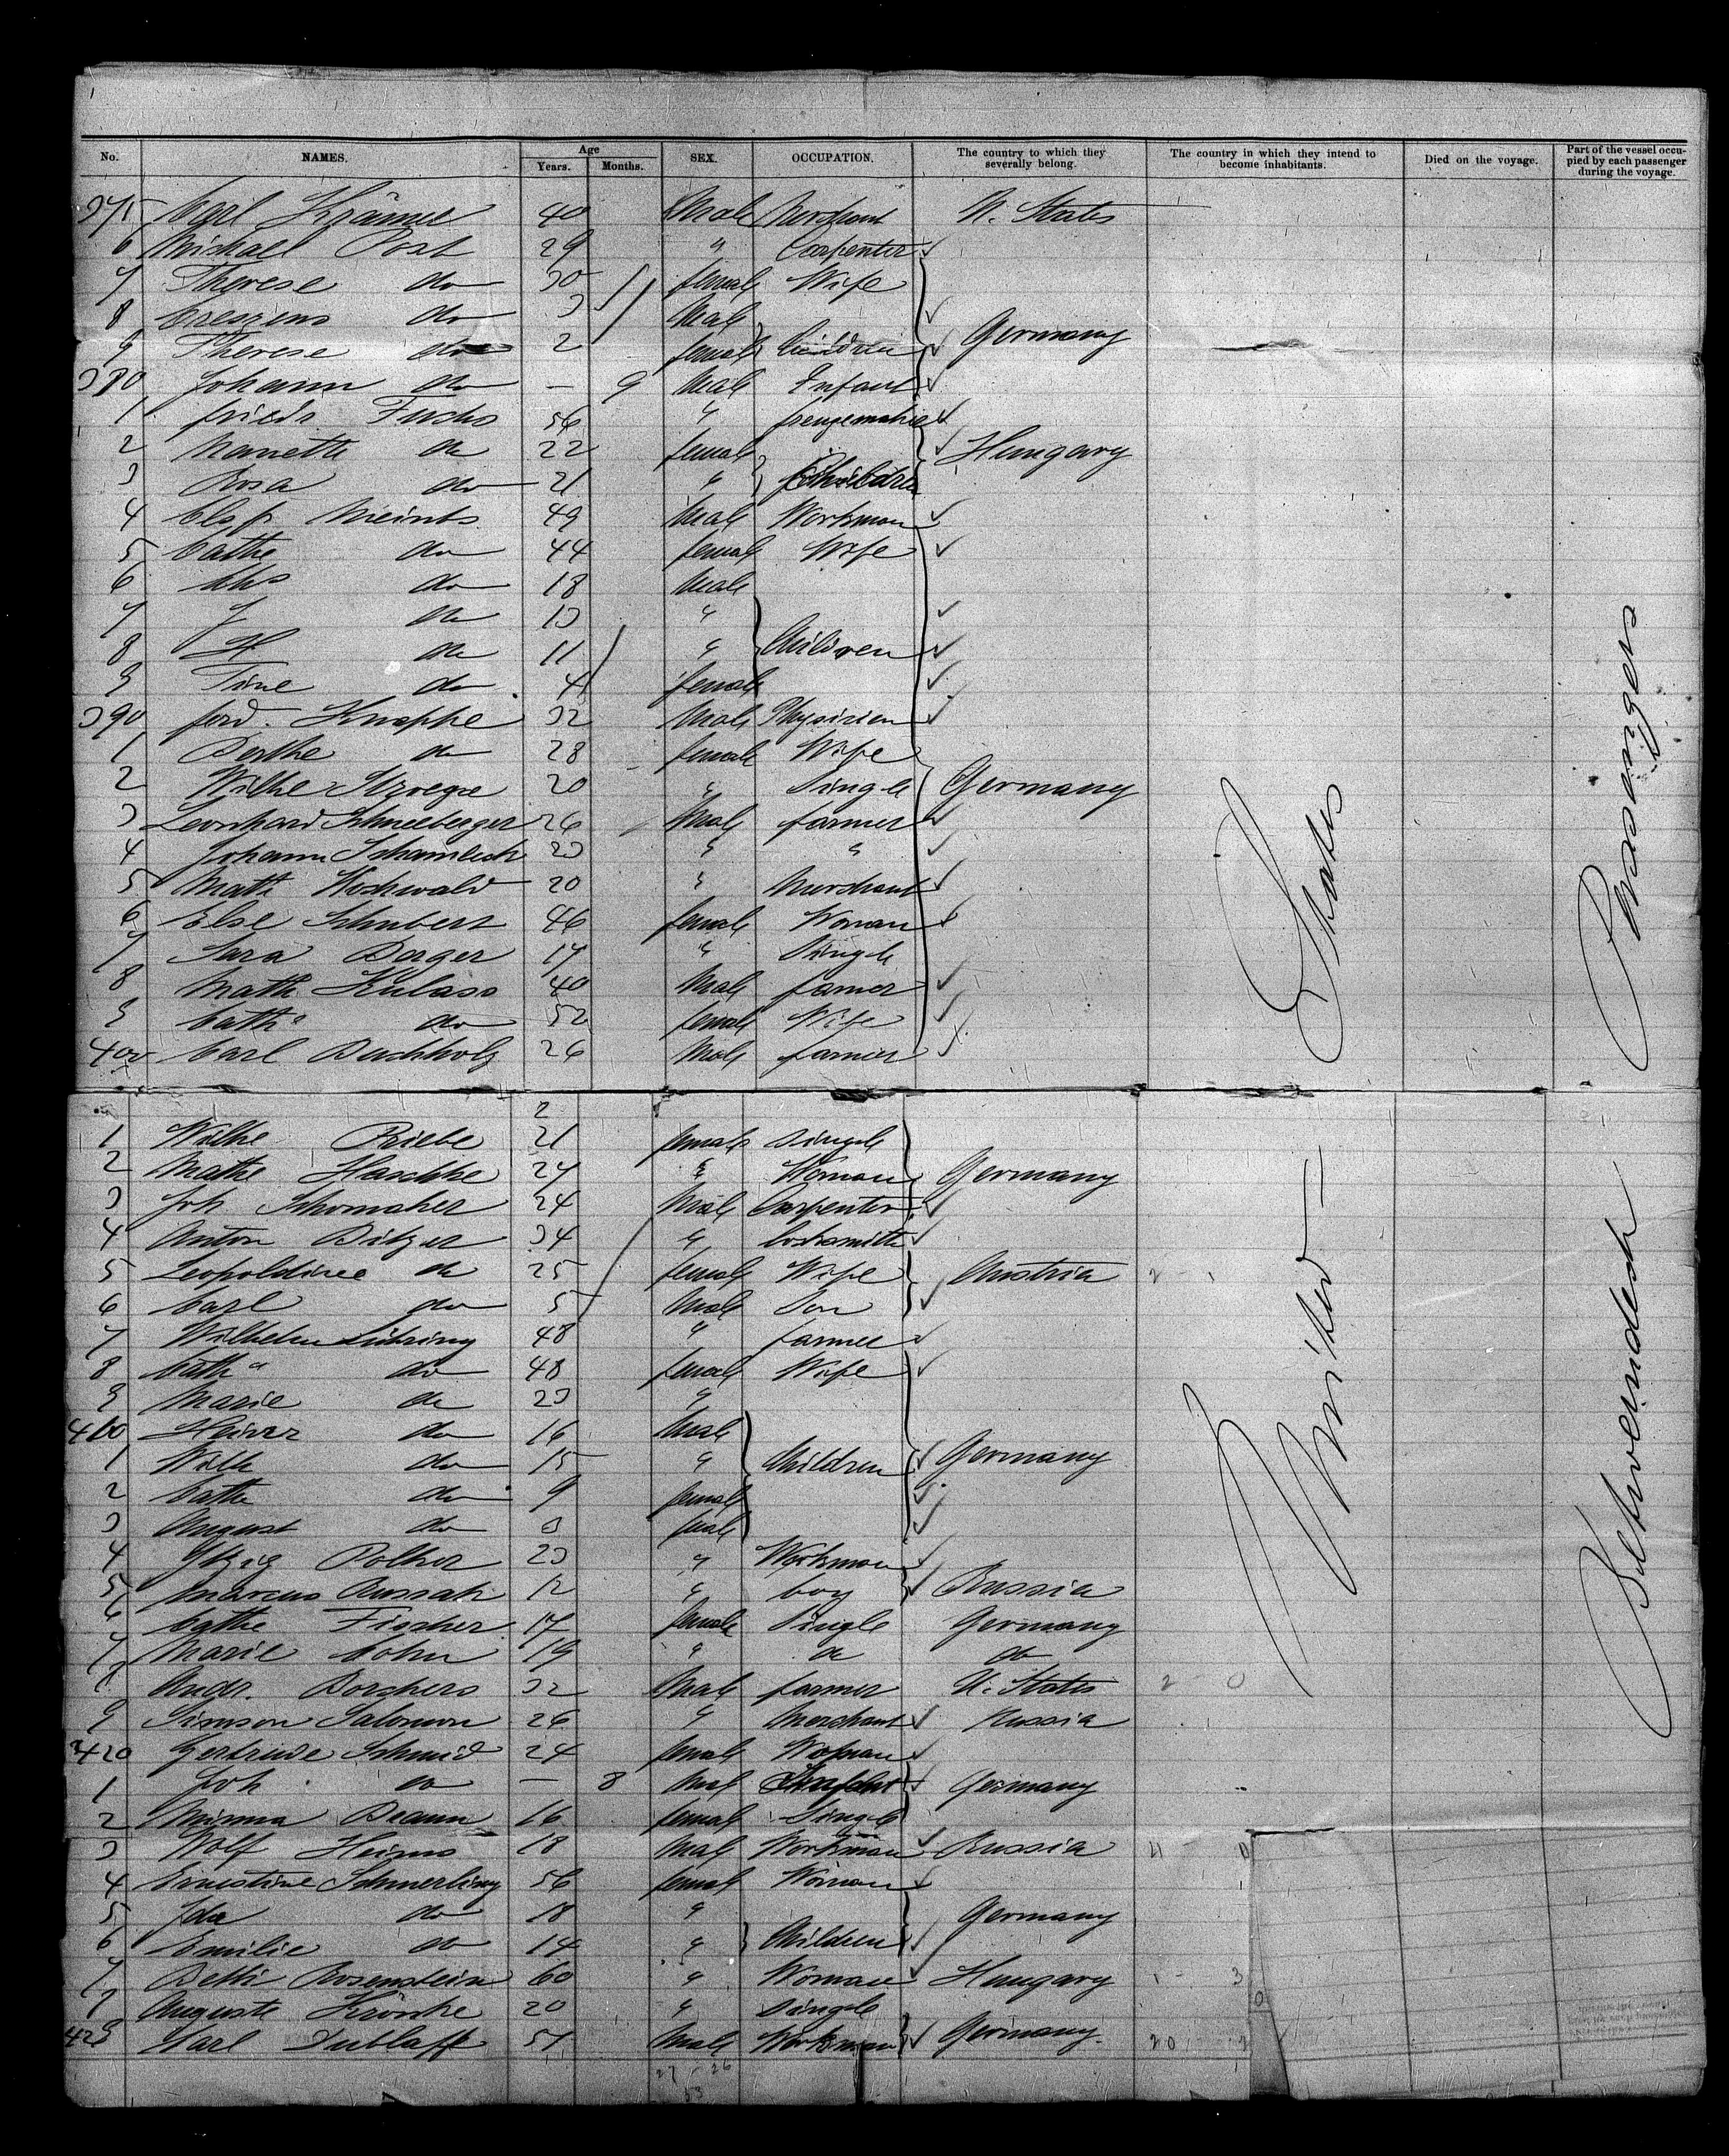 No. NAMES. Age Years. Months. SEX. OCCUPATION. The country to which they severally belong. The country in which they intend to become inhabitants. Died on the voyage. Part of the vessel occupied by each passenger during the voyage.
375 Carl Krämer 40 Male Merchant U. States
6 Michael Post 29 " Carpenter
7 Therese do 30 female Wife
8 Creszens do 3 Male
9 Therese do 2 female Children Germany
380 Johann do — 9 Male Infant
1 Friedr. Fuchs 56 "
2 Nanette do 22 female Hungary
3 Rosa do 21 " Children
4 Meints 49 Male Workman
5 Cathe do 44 female Wife
6 do 18 Male
7 J do 13 "
8 H do 11 " Children
9 Tine do 4 female
390 Ferd. Knappe 32 Male Physician
1 Berthe do 28 female Wife
2 Wilhe 20 " Single Germany
3 Leonhard Schneeberger 26 Male farmer
4 Johann 23 " "
5 Math 20 " Merchant
6 Else Schubert 46 female Woman
7 Sara Berger 17 " Single
8 Math Kulass 40 Male farmer
9 Cathe do 52 female Wife
400 Carl Buchholz 26 Male farmer
2
1 Wilhe Riebe 21 female Single
2 Mathe Haschke 24 " Woman Germany
3 Joh. Schomaker 24 Male Carpenter
4 Anton Bitzer 34 " Locksmith
5 Leopoldine do 25 female Wife Austria
6 Carl do 5 Male Son
7 Wilhelm Lühring 48 " farmer
8 Cathe do 48 female Wife
9 Marie do 23 "
410 Heinr do 16 Male
1 Wilh do 15 " Children Germany
2 Cathe do 9 female
3 August do 3 Male
4 23 " Workman
5 Marcus 12 " boy Russia
6 Cathe Fischer 17 female Single Germany
7 Marie Cohn 19 " do do
8 Andr. Borchers 32 Male farmer U. States
9 Simson Salomon 26 " Merchant Russia
420 Gertrude Schmid 24 female Woman
1 Joh do — 8 Male Infant Germany
2 Minna Braun 16 female Single
3 Wolf 18 Male Workman Russia
4 Ernestine Schmerling 56 female Woman
5 Ida do 18 " Germany
6 Emilie do 14 " Children
7 Betti Rosenstein 60 " Woman Hungary
8 Auguste 20 " Single
429 Carl Dublaff 51 Male Workman Germany
27 26
53
United States
Betweendeck Passengers